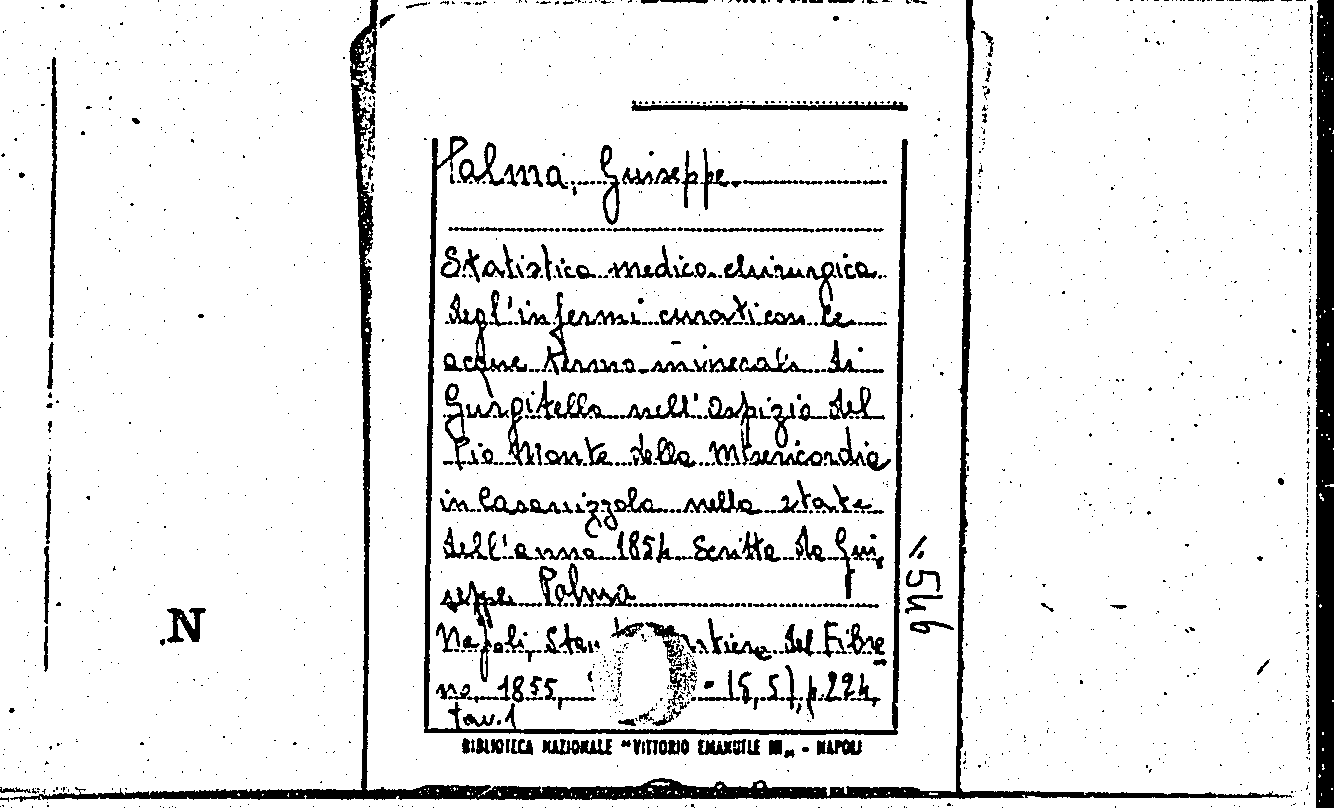 Palma, Giuseppe.
Statistica medico chirurgica
degl'infermi curati con le
acque termo-minerali di
Gurgitello nell'Ospizio del
Pio Monte della Misericordia
in Casamizzola nella state
dell'anno 1854 Scritta da Giu,
seppe Palma
Napoli, del Fibre
no, 1855, - 16,5), p. 224,
tav. 1
BIBLIOTECA NAZIONALE "VITTORIO EMANUELE III" - NAPOLI
N
546